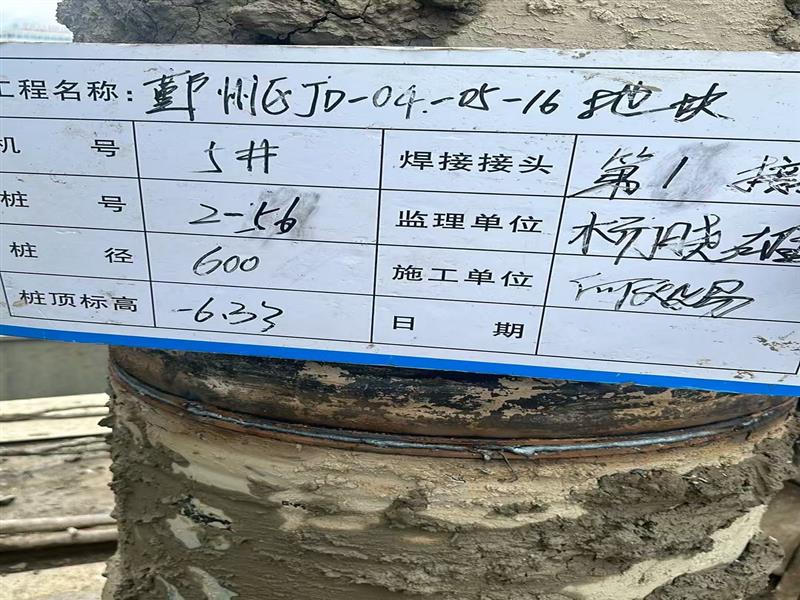 工程名称: 鄞州区JD-04-05-16地块
机 号 5# 焊接接头 第1接
桩 号 2-56 监理单位 杨晓雄
桩 径 600 施工单位
桩顶标高 -6.33 日 期